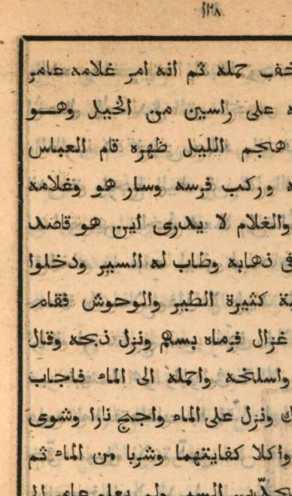 ١٢٨
خف حمله ثم انه امر غلامه عامر
ه على راسين من الخيل وهو
هجم الليل ظهره قام العباس
ه وركب فرسه وسار هو وغلامه
والغلام لا يدرى اين هو قاصد
فى ذهابه وطاب له السير ودخلوا
ية كثيرة الطير والوحوش فقام
غزال فرماه بسهم ونزل ذبحه وقال
واسلخه واحمله الى الماء فاجاب
ك ونزل على الماء واجج نارا وشوى
واكلا كفايتهما وشربا من الماء ثم
السير ولم يعلم عامر الى